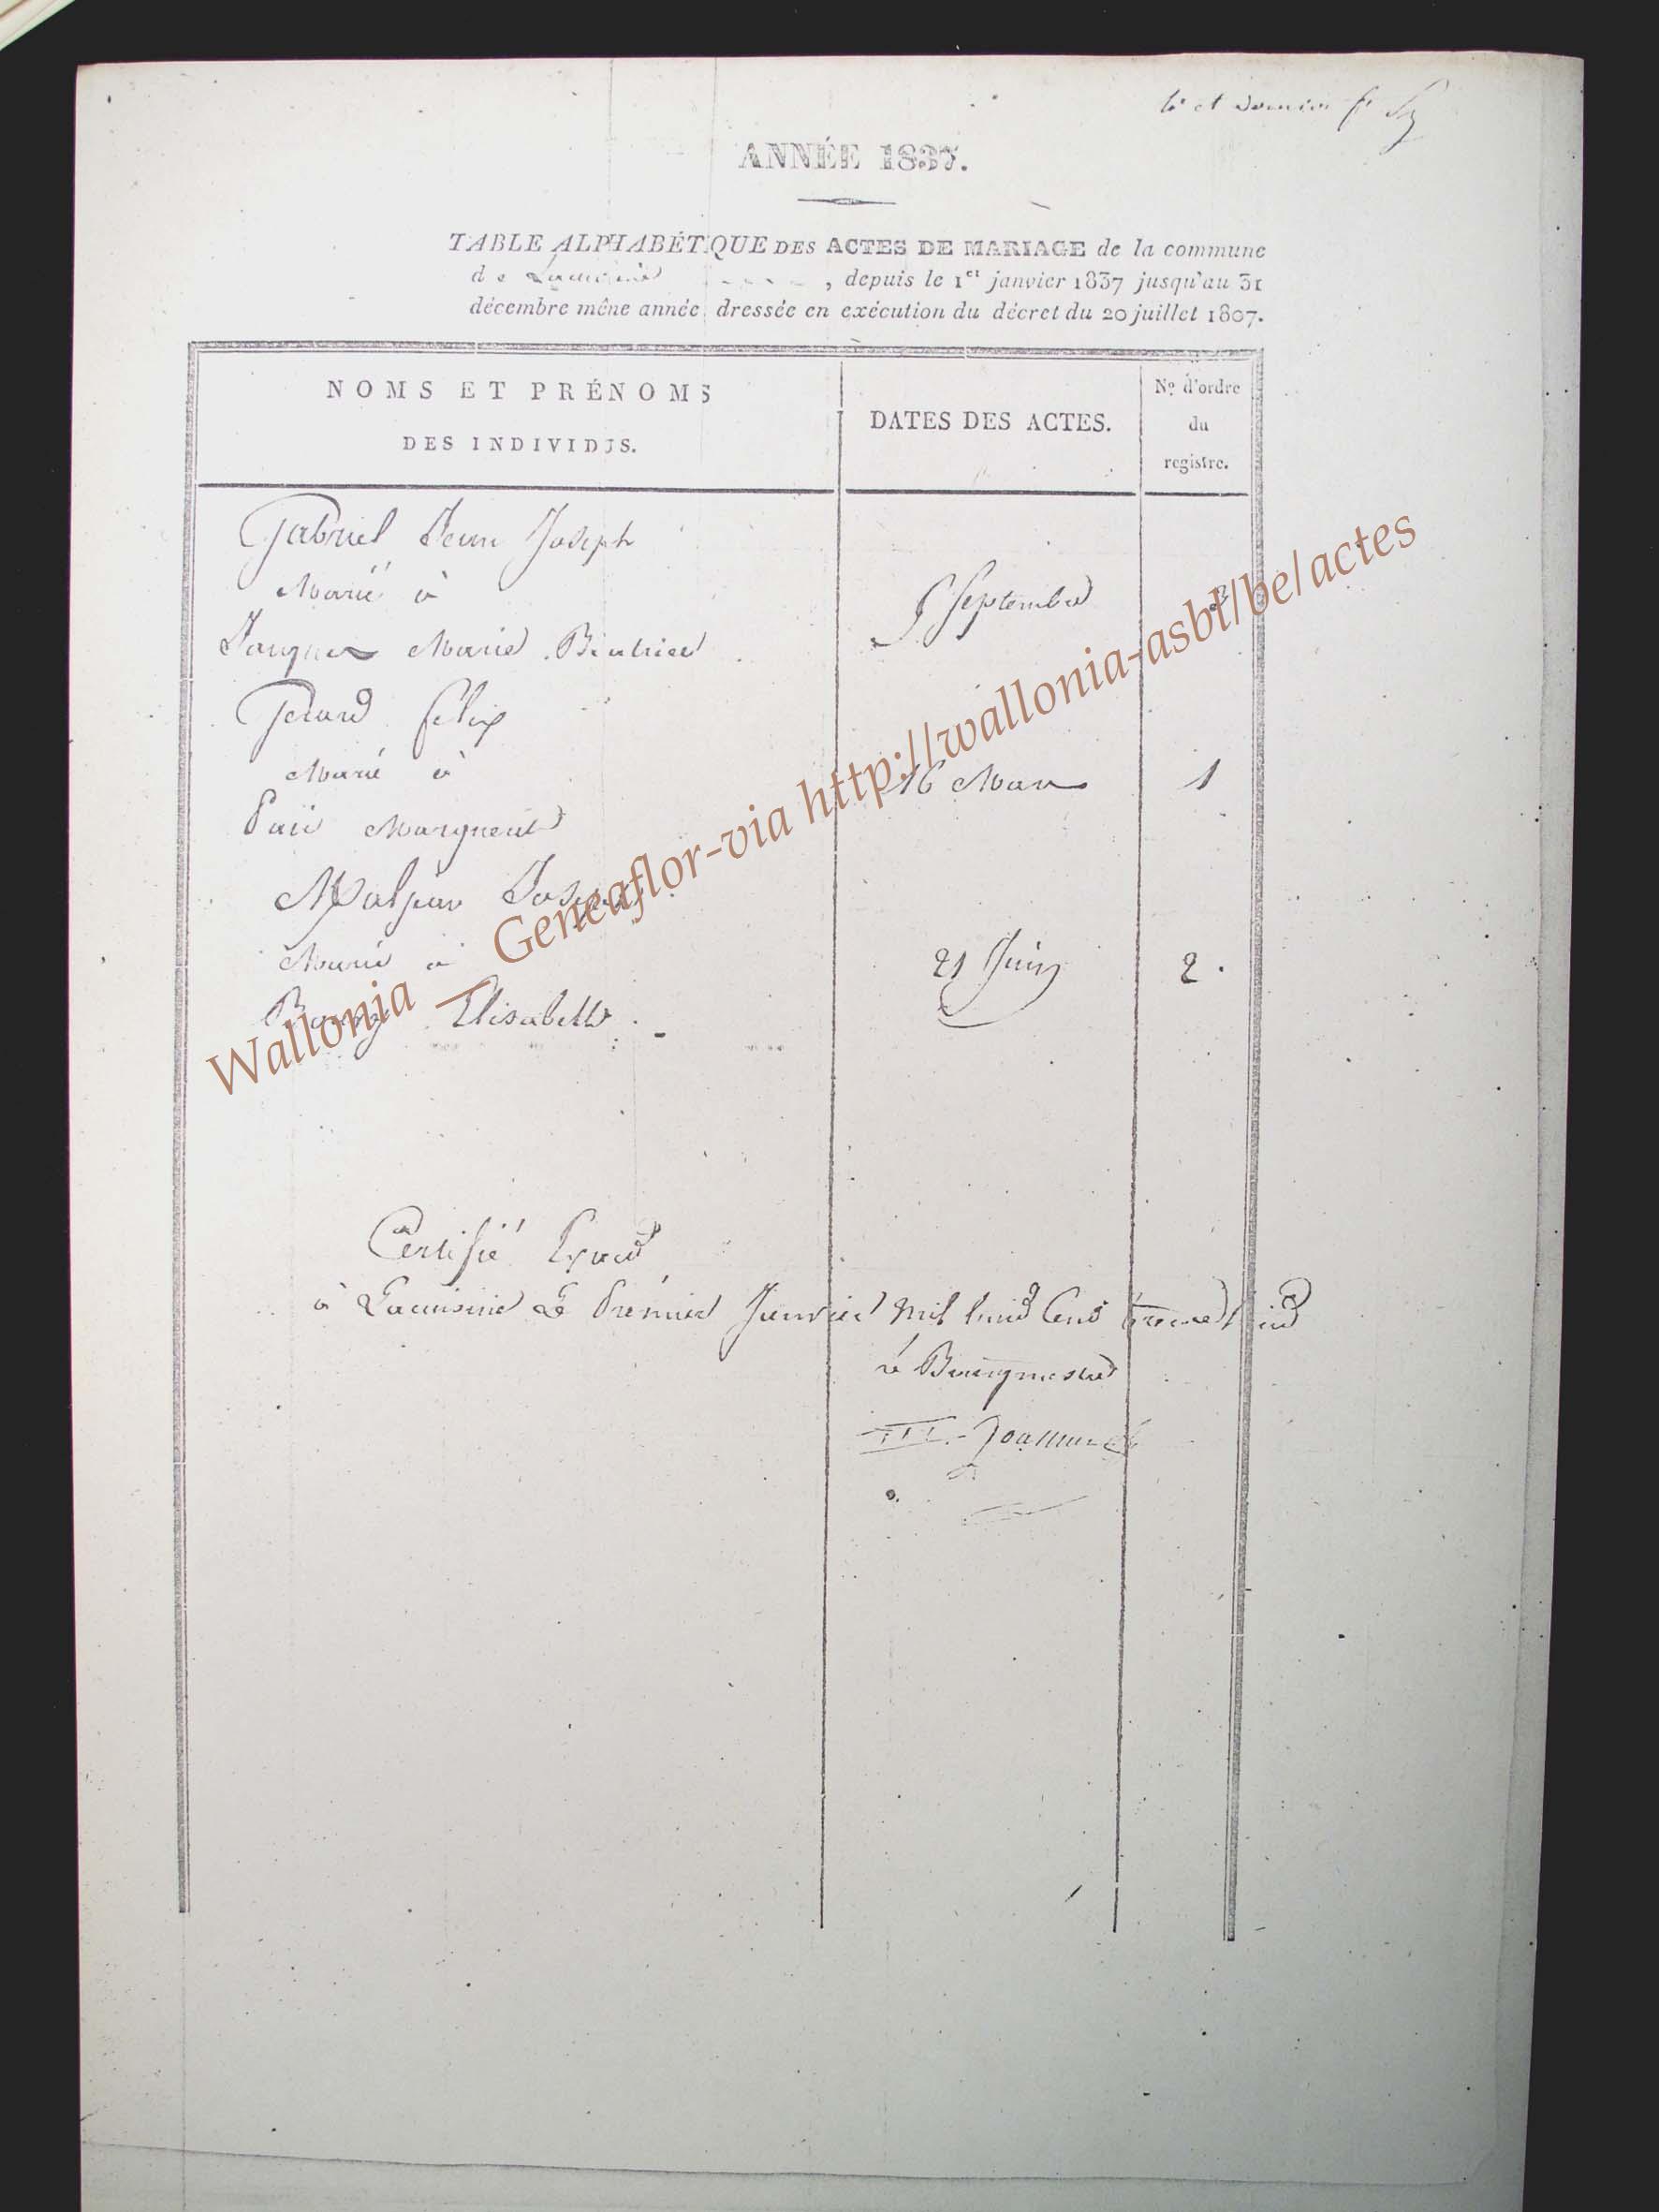 1er et dernier f
ANNÉE 1837.
TABLE ALPHABÉTIQUE DES ACTES DE MARIAGE de la commune
de Lacuisine , depuis le 1er janvier 1837 jusqu'au 31
décembre même année, dressée en exécution du décret du 20 juillet 1807.
NOMS ET PRÉNOMS
DES INDIVIDUS.
DATES DES ACTES.
No d'ordre
du
registre.
Gabriel Jean Joseph
Marié à
Jacques Marie Béatrice
5 Septembre
3
Gerard felix
Marié à
16 Mars
1
Marguerite
Joseph
Marié à
21 Juin
2.
Elisabeth
Certifié Exact
à Lacuisine Le Premier Janvier mil huit Cent trente huit
le Bourgmestre
Wallonia _ Geneaflor-via http://wallonia-asbl/be/actes